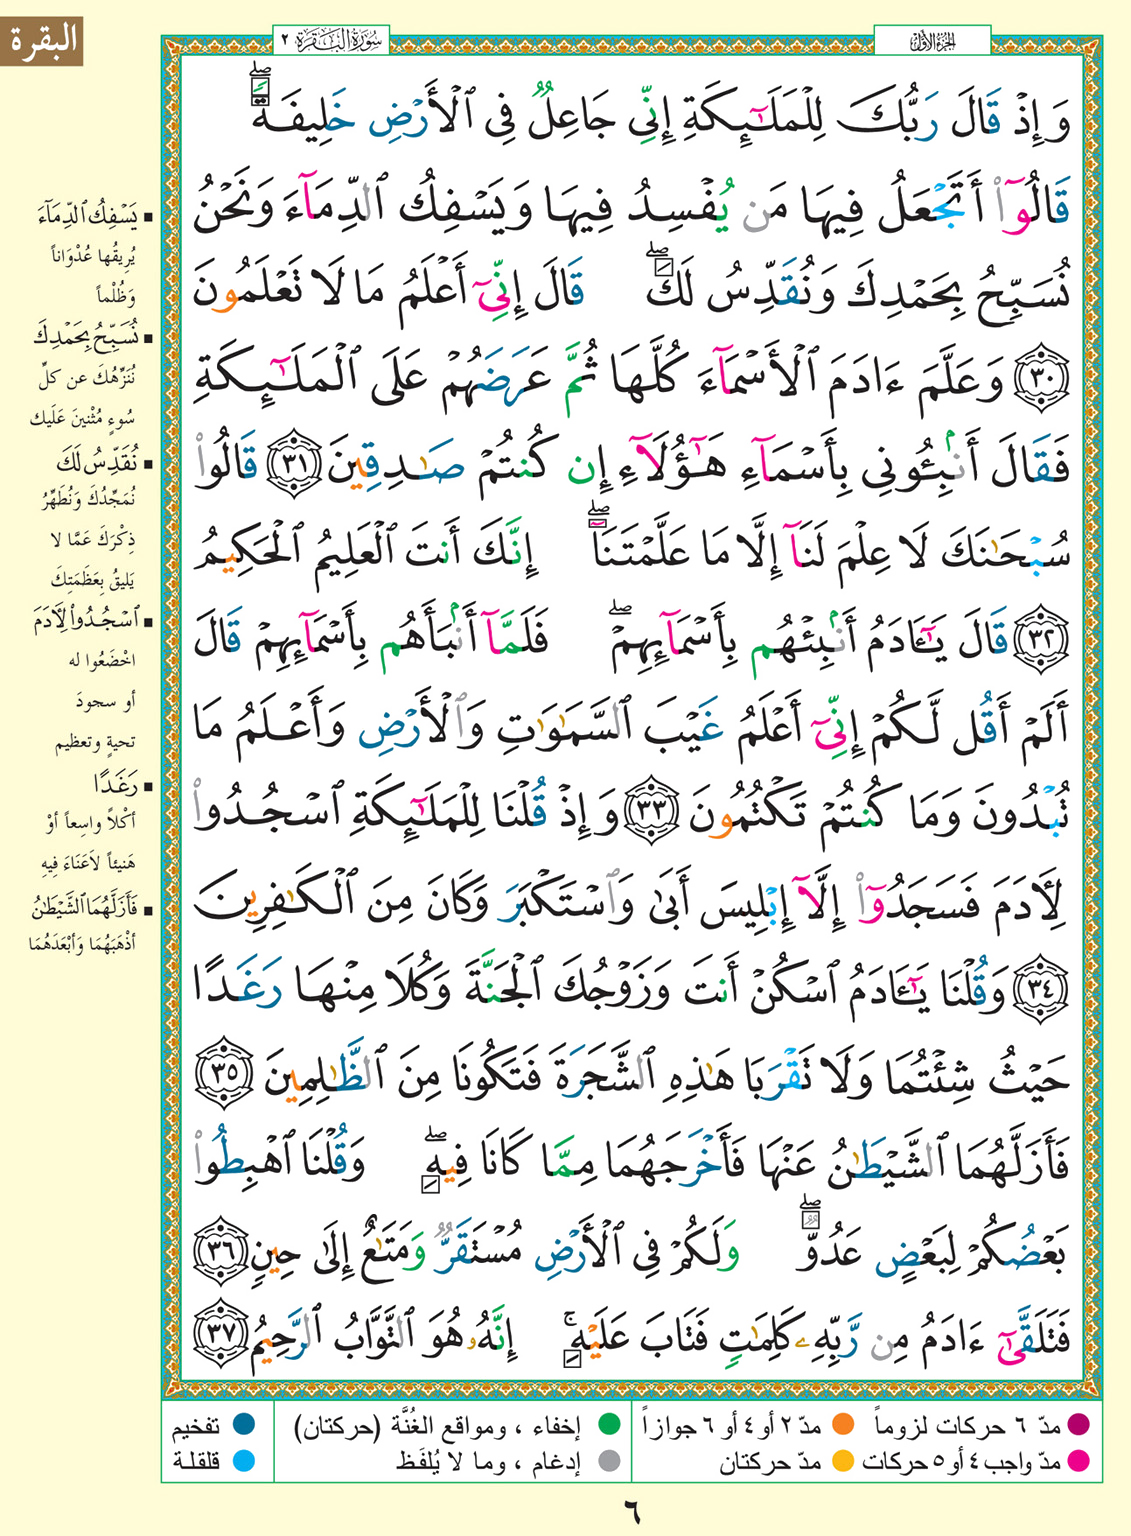 البقرة
سُورَةُ البَقَرَةِ ٢
الجزء الأول
وَإِذْ قَالَ رَبُّكَ لِلْمَلَـٰٓئِكَةِ إِنِّي جَاعِلٌ فِي ٱلْأَرْضِ خَلِيفَةً ۖ
قَالُوٓا۟ أَتَجْعَلُ فِيهَا مَن يُفْسِدُ فِيهَا وَيَسْفِكُ ٱلدِّمَآءَ وَنَحْنُ
نُسَبِّحُ بِحَمْدِكَ وَنُقَدِّسُ لَكَ ۖ قَالَ إِنِّيٓ أَعْلَمُ مَا لَا تَعْلَمُونَ
٣٠ وَعَلَّمَ ءَادَمَ ٱلْأَسْمَآءَ كُلَّهَا ثُمَّ عَرَضَهُمْ عَلَى ٱلْمَلَـٰٓئِكَةِ
فَقَالَ أَنۢبِـُٔونِي بِأَسْمَآءِ هَـٰٓؤُلَآءِ إِن كُنتُمْ صَـٰدِقِينَ ٣١ قَالُوا۟
سُبْحَـٰنَكَ لَا عِلْمَ لَنَآ إِلَّا مَا عَلَّمْتَنَآ ۖ إِنَّكَ أَنتَ ٱلْعَلِيمُ ٱلْحَكِيمُ
٣٢ قَالَ يَـٰٓـَٔادَمُ أَنۢبِئْهُم بِأَسْمَآئِهِمْ ۖ فَلَمَّآ أَنۢبَأَهُم بِأَسْمَآئِهِمْ قَالَ
أَلَمْ أَقُل لَّكُمْ إِنِّيٓ أَعْلَمُ غَيْبَ ٱلسَّمَـٰوَٰتِ وَٱلْأَرْضِ وَأَعْلَمُ مَا
تُبْدُونَ وَمَا كُنتُمْ تَكْتُمُونَ ٣٣ وَإِذْ قُلْنَا لِلْمَلَـٰٓئِكَةِ ٱسْجُدُوا۟
لِـَٔادَمَ فَسَجَدُوٓا۟ إِلَّآ إِبْلِيسَ أَبَىٰ وَٱسْتَكْبَرَ وَكَانَ مِنَ ٱلْكَـٰفِرِينَ
٣٤ وَقُلْنَا يَـٰٓـَٔادَمُ ٱسْكُنْ أَنتَ وَزَوْجُكَ ٱلْجَنَّةَ وَكُلَا مِنْهَا رَغَدًا
حَيْثُ شِئْتُمَا وَلَا تَقْرَبَا هَـٰذِهِ ٱلشَّجَرَةَ فَتَكُونَا مِنَ ٱلظَّـٰلِمِينَ ٣٥
فَأَزَلَّهُمَا ٱلشَّيْطَـٰنُ عَنْهَا فَأَخْرَجَهُمَا مِمَّا كَانَا فِيهِ ۖ وَقُلْنَا ٱهْبِطُوا۟
بَعْضُكُمْ لِبَعْضٍ عَدُوٌّ ۖ وَلَكُمْ فِي ٱلْأَرْضِ مُسْتَقَرٌّ وَمَتَـٰعٌ إِلَىٰ حِينٍ ٣٦
فَتَلَقَّىٰٓ ءَادَمُ مِن رَّبِّهِۦ كَلِمَـٰتٍ فَتَابَ عَلَيْهِ ۚ إِنَّهُۥ هُوَ ٱلتَّوَّابُ ٱلرَّحِيمُ ٣٧
■ يَسْفِكُ ٱلدِّمَآءَ
يُرِيقُها عُدْوَاناً
وَظُلْماً
■ نُسَبِّحُ بِحَمْدِكَ
نُنَزِّهُكَ عن كلِّ
سُوءٍ مُثْنينَ عَلَيك
■ نُقَدِّسُ لَكَ
نُمَجِّدُكَ وَنُطَهِّرُ
ذِكْرَكَ عَمَّا لا
يَليقُ بِعَظَمَتِكَ
■ ٱسْجُدُوا۟ لِـَٔادَمَ
اخْضَعُوا له
أو سجودَ
تحيةٍ وتعظيم
■ رَغَدًا
أكْلاً واسِعاً أوْ
هَنيئاً لاَعَنَاءَ فِيهِ
■ فَأَزَلَّهُمَا ٱلشَّيْطَـٰنُ
أذْهَبَهُمَا وَأبْعَدَهُمَا
مدّ ٦ حركات لزوماً
مدّ ٢ أو ٤ أو ٦ جوازاً
إخفاء ، ومواقع الغُنَّة (حركتان)
تفخيم
مدّ واجب ٤ أو ٥ حركات
مدّ حركتان
إدغام ، وما لا يُلفَظ
قلقلة
٦